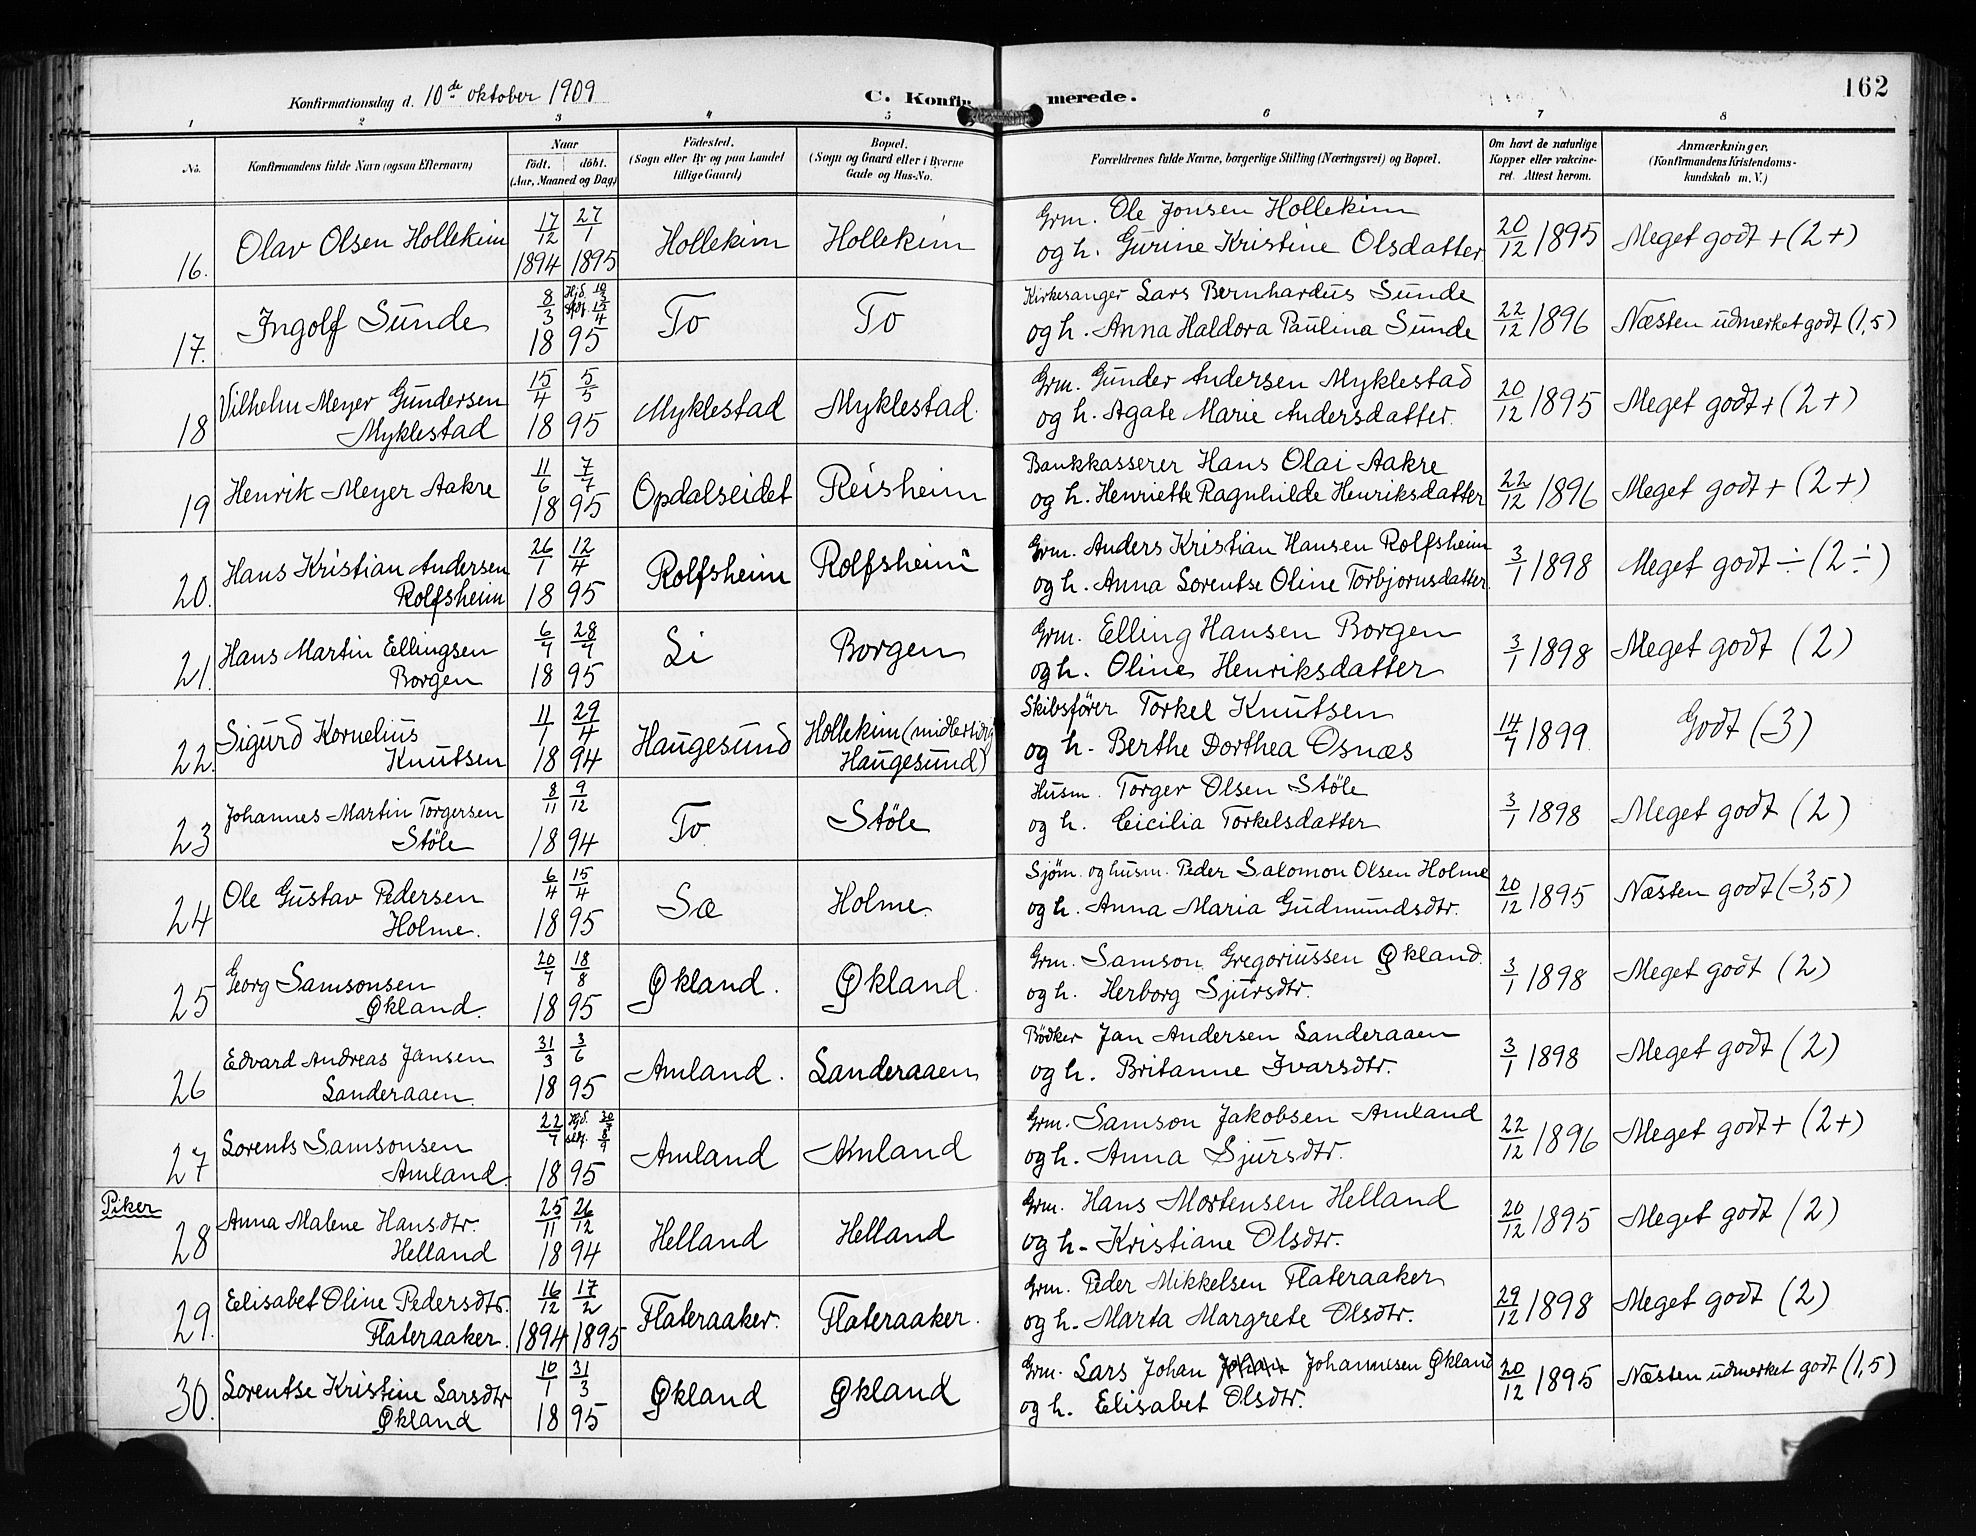 Konfirmationsdag d. 10de oktober 1909
C. Konfirmerede.
162
1 2 3 4 5 6 7 8
No.
Konfirmandens fulde Navn (ogsaa Efternavn)
Naar
født. døbt.
(Aar, Maaned og Dag)
Fødested.
(Sogn eller By og paa Landet
tillige Gaard)
Bopæl.
(Sogn og Gaard eller i Byerne
Gade og Hus-No.
Forældrenes fulde Navne, borgerlige Stilling (Næringsvei) og Bopæl.
Om havt de naturlige
Kopper eller vakcine-
ret. Attest herom.
Anmærkninger.
(Konfirmandens Kristendoms-
kundskab m. V.)
16. Olav Olsen Hollekim 17/12 1894 27/1 1895 Hollekim Hollekim Grm. Ole Jonsen Hollekim
og h. Gurine Kristine Olsdatter 20/12 1895 Meget godt + (2+)
17. Ingolf Sunde 8/3 1895 To To Kirkesanger Lars Bernhardus Sunde
og h. Anna Haldora Paulina Sunde 22/12 1896 Næsten udmerket godt (1,5)
18 Vilhelm Meyer Gundersen
Myklestad 15/4 5/5 1895 Myklestad Myklestad Grm. Gunder Andersen Myklestad
og h. Agate Marie Andersdatter. 20/12 1895 Meget godt + (2+)
19 Henrik Meyer Aakre 11/6 7/7 1895 Opdalseidet Reisheim Bankkasserer Hans Olai Aakre
og h. Henriette Ragnhilde Henriksdatter 22/12 1896 Meget godt + (2+)
20. Hans Kristian Andersen
Rolfsheim 26/1 12/4 1895 Rolfsheim Rolfsheim Grm. Anders Kristian Hansen Rolfsheim
og h. Anna Lorentse Oline Torbjørnsdatter 3/1 1898 Meget godt ÷ (2÷)
21. Hans Martin Ellingsen
Borgen 6/7 28/7 1895 Li Borgen Grm. Elling Hansen Borgen
og h. Oline Henriksdatter 3/1 1898 Meget godt (2)
22. Sigurd Kornelius
Knutsen 11/1 29/4 1894 Haugesund Hollekim (midlertidig
Haugesund) Skibsfører Torkel Knutsen
og h. Berthe Dorthea Osnæs 14/7 1899. Godt (3)
23 Johannes Martin Torgersen
Støle 8/11 9/12 1894 To Støle Husm. Torger Olsen Støle
og h. Cicilia Torkelsdatter 3/1 1898 Meget godt (2)
24 Ole Gustav Pedersen
Holme. 6/4 15/4 1895 Sæ Holme. Sjøm. og husm. Peder Salomon Olsen Holme
og h. Anna Maria Gudmundsdtr. 20/12 1895 Næsten godt (3,5)
25 Georg Samsonsen
Økland. 20/7 18/8 1895 Økland. Økland. Grm. Samson Gregoriussen Økland.
og h. Herborg Sjursdtr. 3/1 1898 Meget godt (2)
26 Edvard Andreas Jansen
Sanderaaen. 31/3 3/6 1895 Amland. Sanderaaen Bødker Jan Andersen Sanderaaen
og h. Britanne Ivarsdtr. 3/1 1898 Meget godt (2)
27 Lorents Samsonsen
Amland. 22/7 1895 Amland Amland Grm. Samson Jakobsen Amland
og h. Anna Sjursdtr. 22/12 1896 Meget godt + (2+)
Piker
28 Anna Malene Hansdtr.
Helland 25/11 26/12 1894 Helland Helland Grm. Hans Mortensen Helland
og h. Kristiane Olsdtr. 20/12 1895 Meget godt (2)
29. Eelisabet Oline Pedersdtr.
Flateraaker. 16/12 1894 17/2 1895 Flateraaker. Flateraaker. Grm. Peder Mikkelsen Flateraaker
og h. Marta Margrete Olsdtr. 29/12 1898 Meget godt (2)
30. Lorentse Kristine Larsdtr
Økland 10/1 31/3 1895 Økland Økland Grm. Lars Johan Johannesen Økland
og h. Elisabet Olsdtr. 20/12 1895 Næsten udmerket godt (1,5)